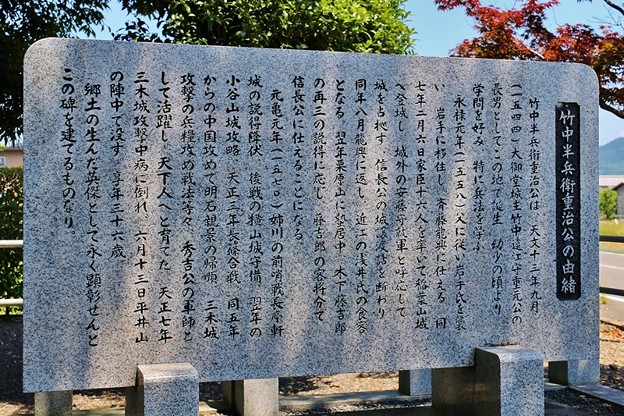 竹中半兵衛重治公の由緒
竹中半兵衛重治公は、天文十三年九月
(一五四四)大御堂城主竹中遠江守重元公の
長男としてこの地で誕生 幼少の頃より
学問を好み 特に兵法を学ぶ
永禄元年(一五五八)父に従い岩手氏を襲
い 岩手に移住し 斉藤龍興に仕える 同
七年二月六日家臣十六人を率いて稲葉山城
へ登城し 城外の安藤守就軍と呼応して
城を占拠す 信長公の城の譲渡話を断わり
同年八月龍興に返し 近江の浅井氏の食客
となる 翌年栗原山に蟄居中 木下藤吉郎
の再三の説得に応じ 藤吉郎の客将分で
信長公に仕えることになる
元亀元年(一五七〇)姉川の前哨戦長亭軒
城の説得降伏 後戦の横山城守備 翌年の
小谷山城攻略 天正三年長篠合戦 同五年
からの中国攻めで明石 の帰順 三木城
攻撃の兵糧攻め戦法等々 秀吉公の軍師と
して活躍し 天下人へと育てた 天正七年
三木城攻撃中病に倒れ 六月十三日平井山
の陣中で没す 享年三十六歳
郷土の生んだ英傑として永く顕彰せんと
この碑を建てるものなり